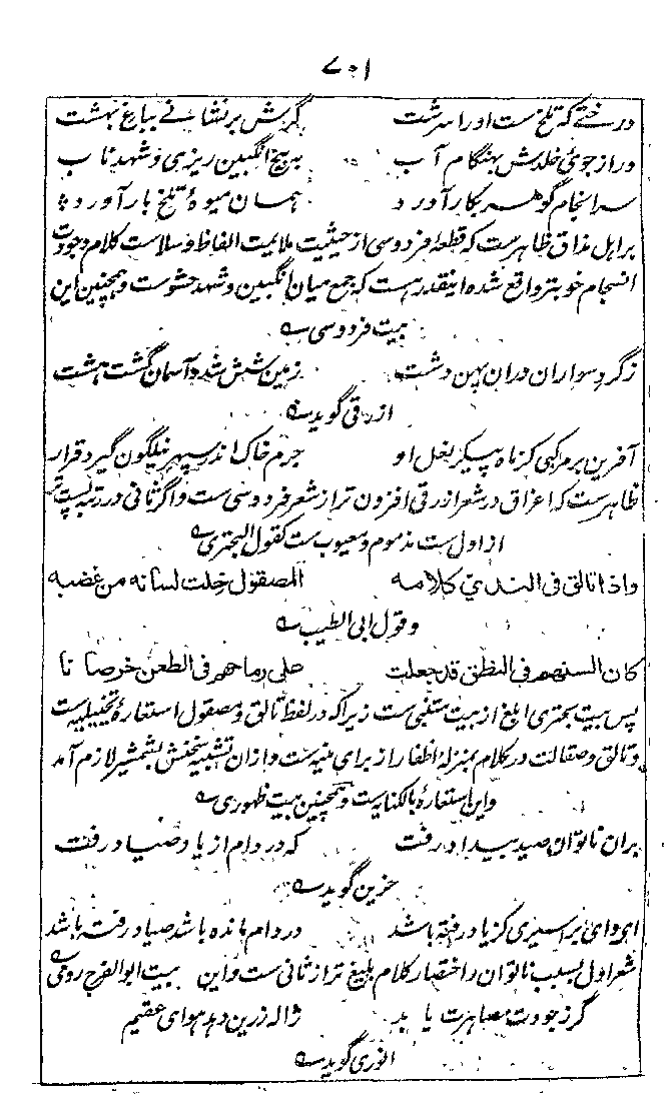 ۷۰۱
درختے کہ تلخ ست او را سرشت گرش برنشانے بباغ بہشت
ور از جوئ خلدش بہنگام آب بہ بیخ انگبین ریزی و شہد ناب
سرانجام گوہر بکار آورد ہمان میوۂ تلخ بار آورد
بر اہل مذاق ظاہرست کہ قطعۂ فردوسی از حیثیت ملایمت الفاظ و سلاست کلام وجودت
انسجام خوبتر واقع شدہ اینقدر ہست کہ جمع میان انگبین و شہد حشوست و ہمچنین این
بیت فردوسی ؎
ز گرد سواران دران پہن دشت زمین شش شد و آسمان گشت ہشت
ازرقی گوید ؎
آفرین بر مرکبی کز ماہ پیکر نعل او جرم خاک اندر سپہر نیلگون گیرد قرار
ظاہرست کہ اغراق در شعر ازرقی افزون تر از شعر فردوسی ست و اگر ثانی در رتبہ پست تر
از اول ست مذموم و معیوب ست کقول البحتری ؎
واذا تالق فی الندي کلامه المصقول خلت لسانه من عضبه
و قول ابی الطیب ؎
کان السنهم فی النطق قد جعلت علی رماحهم فی الطعن خرصانا
پس بیت بحتری ابلغ از بیت متنبی ست زیرا کہ در لفظ تالق و مصقول استعارۂ تخییلیہ ست
و تالق و صقالت در کلام بمنزلہ اظفار از برای منیہ ست و ازان تشبیہ سخنش بشمشیر لازم آمد
و این استعارہ بالکنایہ ست و ہمچنین بیت ظہوری ؎
بران ناتوان صید بیداد رفت کہ در دام از یاد صیاد رفت
حزین گوید ؎
ای وای بر اسیری کز یاد رفتہ باشد در دام ماندہ باشد صیاد رفتہ باشد
شعر اول بسبب ناتوان و اختصار کلام بلیغ تر از ثانی ست و این بیت ابوالفرج رومی ؎
گر ز جودت معاہرت یابد ژالہ زرین دہد ہوای عقیم
انوری گوید ؎